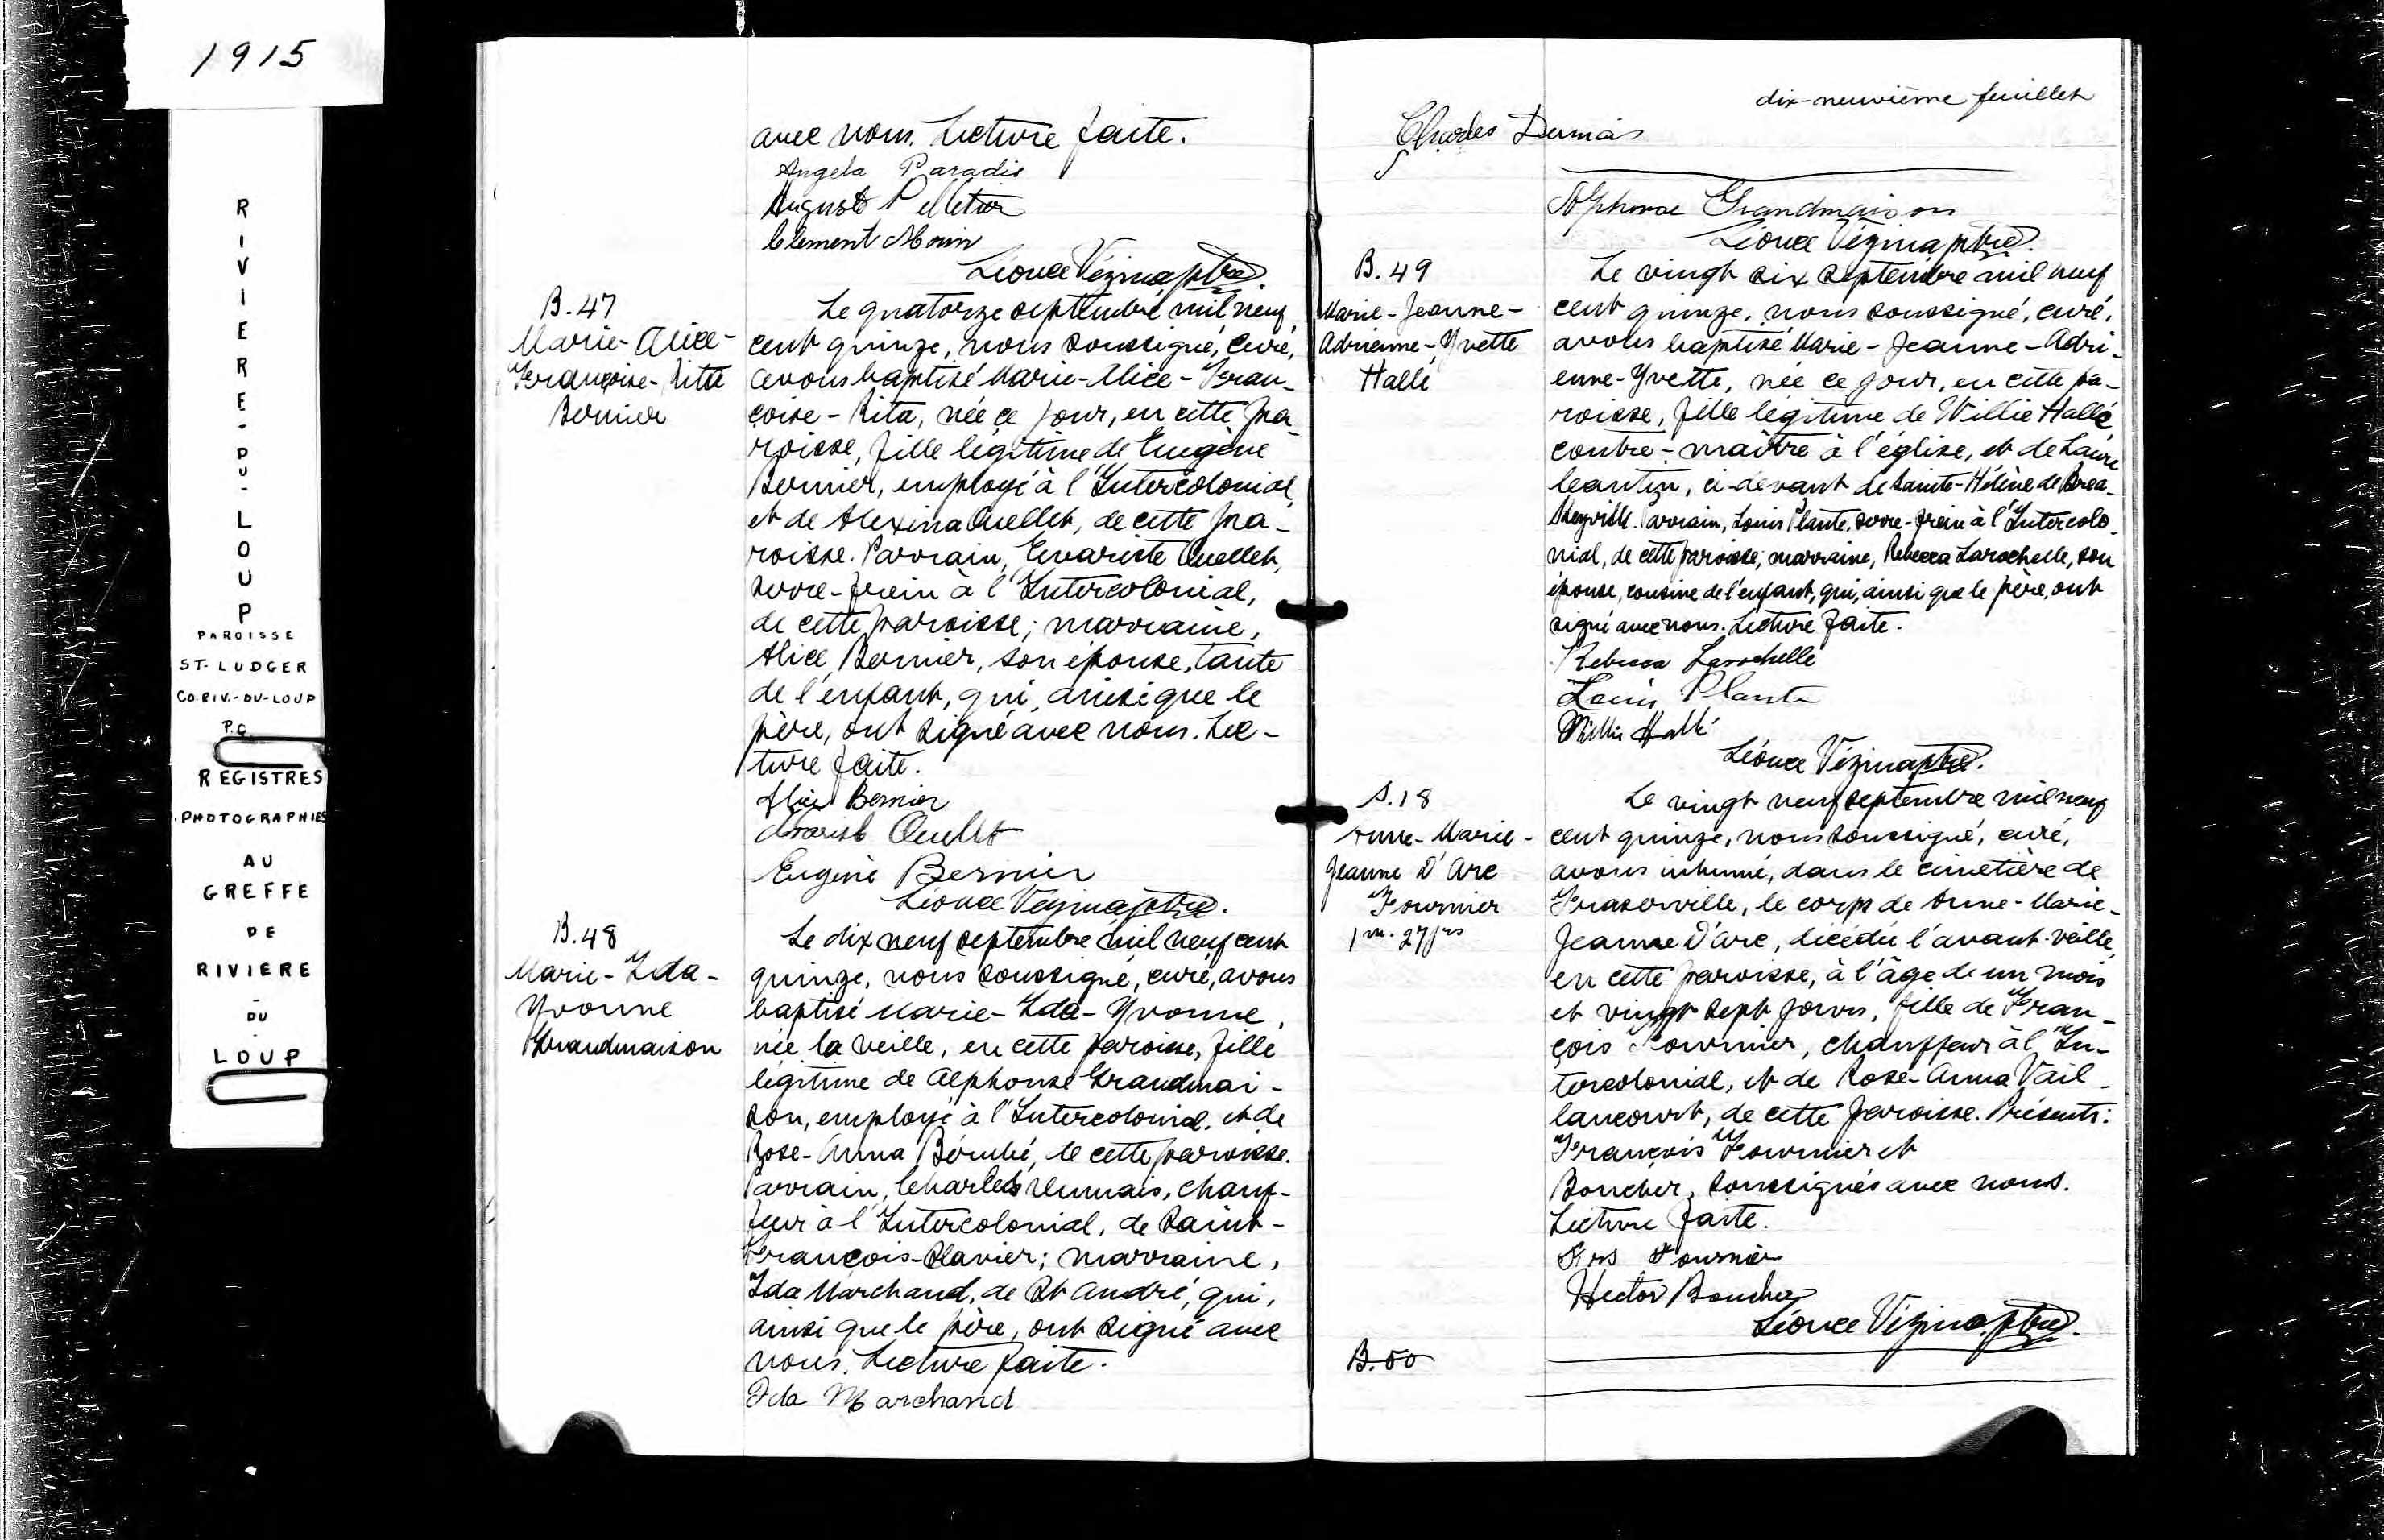 1915
RIVIERE-DU-LOUP
PAROISSE
ST-LUDGER
CO. RIV.-DU-LOUP
P.Q.
REGISTRES
PHOTOGRAPHIES
AU
GREFFE
DE
RIVIERE
-
DU
-
LOUP
avec nous. Lecture faite.
Angela Paradis
Auguste Pelletier
Clement Morin
Léonce Vézina ptre.
B.47
Marie-Alice-
Françoise-Rita
Bernier
Le quatorze septembre mil neuf
cent quinze, nous soussigné, curé,
avons baptisé Marie-Alice-Fran-
çoise-Rita, née ce jour, en cette pa-
roisse, fille légitime de Eugène
Bernier, employé à l'Intercolonial,
et de Alexina Ouellet, de cette pa-
roisse. Parrain, Evariste Ouellet,
serre-frein à l'Intercolonial,
de cette paroisse; marraine,
Alice Bernier, son épouse, tante
de l'enfant, qui, ainsi que le
père, ont signé avec nous. Lec-
ture faite.
Alice Bernier
Evarist Ouellet
Eugène Bernier
Léonce Vézina ptre.
B.48
Marie-Ida-
Yvonne
Grandmaison
Le dix neuf septembre mil neuf cent
quinze, nous soussigné, curé, avons
baptisé Marie-Ida-Yvonne,
née la veille, en cette paroisse, fille
légitime de Alphonse Grandmai-
son, employé à l'Intercolonial, et de
Rose-Anna Bérubé, de cette paroisse.
Parrain, Charles Dumais, chauf-
feur à l'Intercolonial, de Saint-
François-Xavier; marraine,
Ida Marchand, de St André, qui,
ainsi que le père, ont signé avec
nous. Lecture faite.
Ida Marchand
dix-neuvième feuillet
Charles Dumais
Alphonse Grandmaison
Léonce Vézina ptre.
B.49
Marie-Jeanne-
Adrienne-Yvette
Hallé
Le vingt six septembre mil neuf
cent quinze, nous soussigné, curé,
avons baptisé Marie-Jeanne-Adri-
enne-Yvette, née ce jour, en cette pa-
roisse, fille légitime de Willie Hallé
contre-maître à l'église, et de Laure
Cantin, ci-devant de Sainte-Hélène de Brea-
keyville. Parrain, Louis Plante, serre-frein à l'Intercolo-
nial, de cette paroisse; marraine, Rebecca Larochelle, son
épouse, cousine de l'enfant, qui, ainsi que le père, ont
signé avec nous. Lecture faite.
Rebecca Larochelle
Louis Plante
Willie Hallé
Léonce Vézina ptre.
S.18
Anne-Marie-
Jeanne D'Arc
Fournier
1 m. 27 jrs
Le vingt neuf septembre mil neuf
cent quinze, nous soussigné, curé,
avons inhumé, dans le cimetière de
Fraserville, le corps de Anne-Marie-
Jeanne D'Arc, décédée l'avant-veille,
en cette paroisse, à l'âge de un mois
et vingt sept jours, fille de Fran-
çois Fournier, chauffeur à l'In-
tercolonial, et de Rose-Anna Vail-
lancourt, de cette paroisse. Présents:
François Fournier et
Boucher, soussignés avec nous.
Lecture faite.
Frs Fournier
Hector Boucher
Léonce Vézina ptre.
B.50